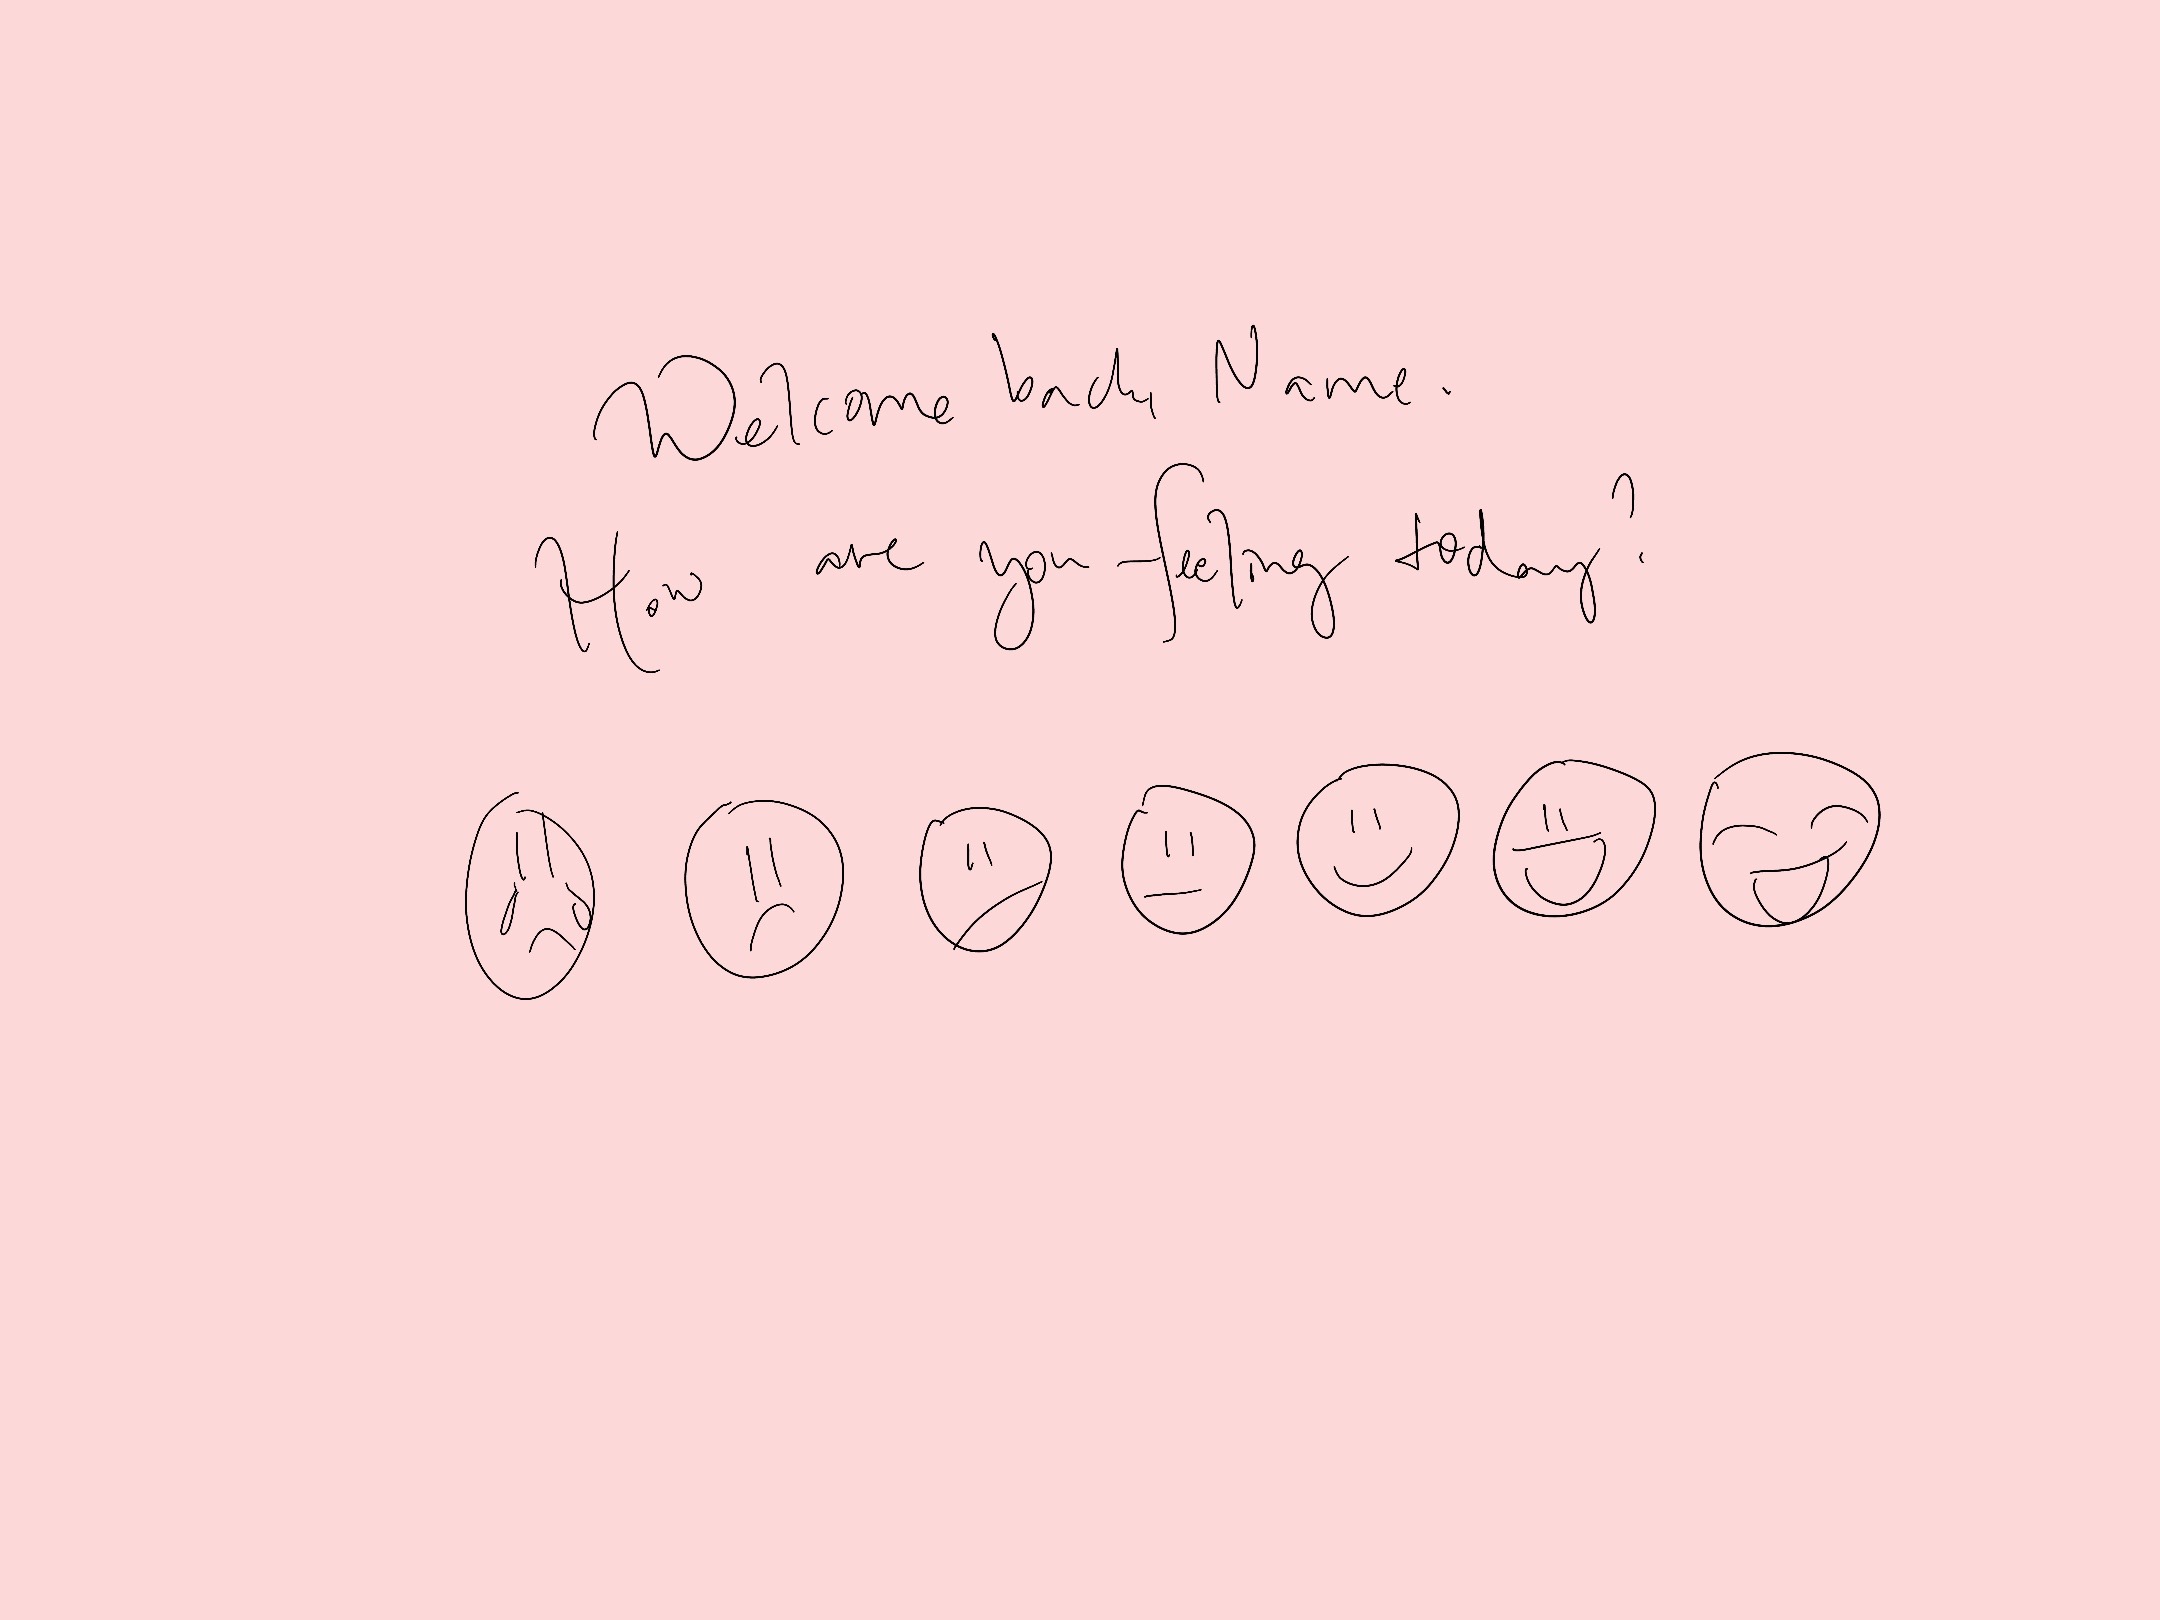 Welcome back, Name.
How are you feeling today?